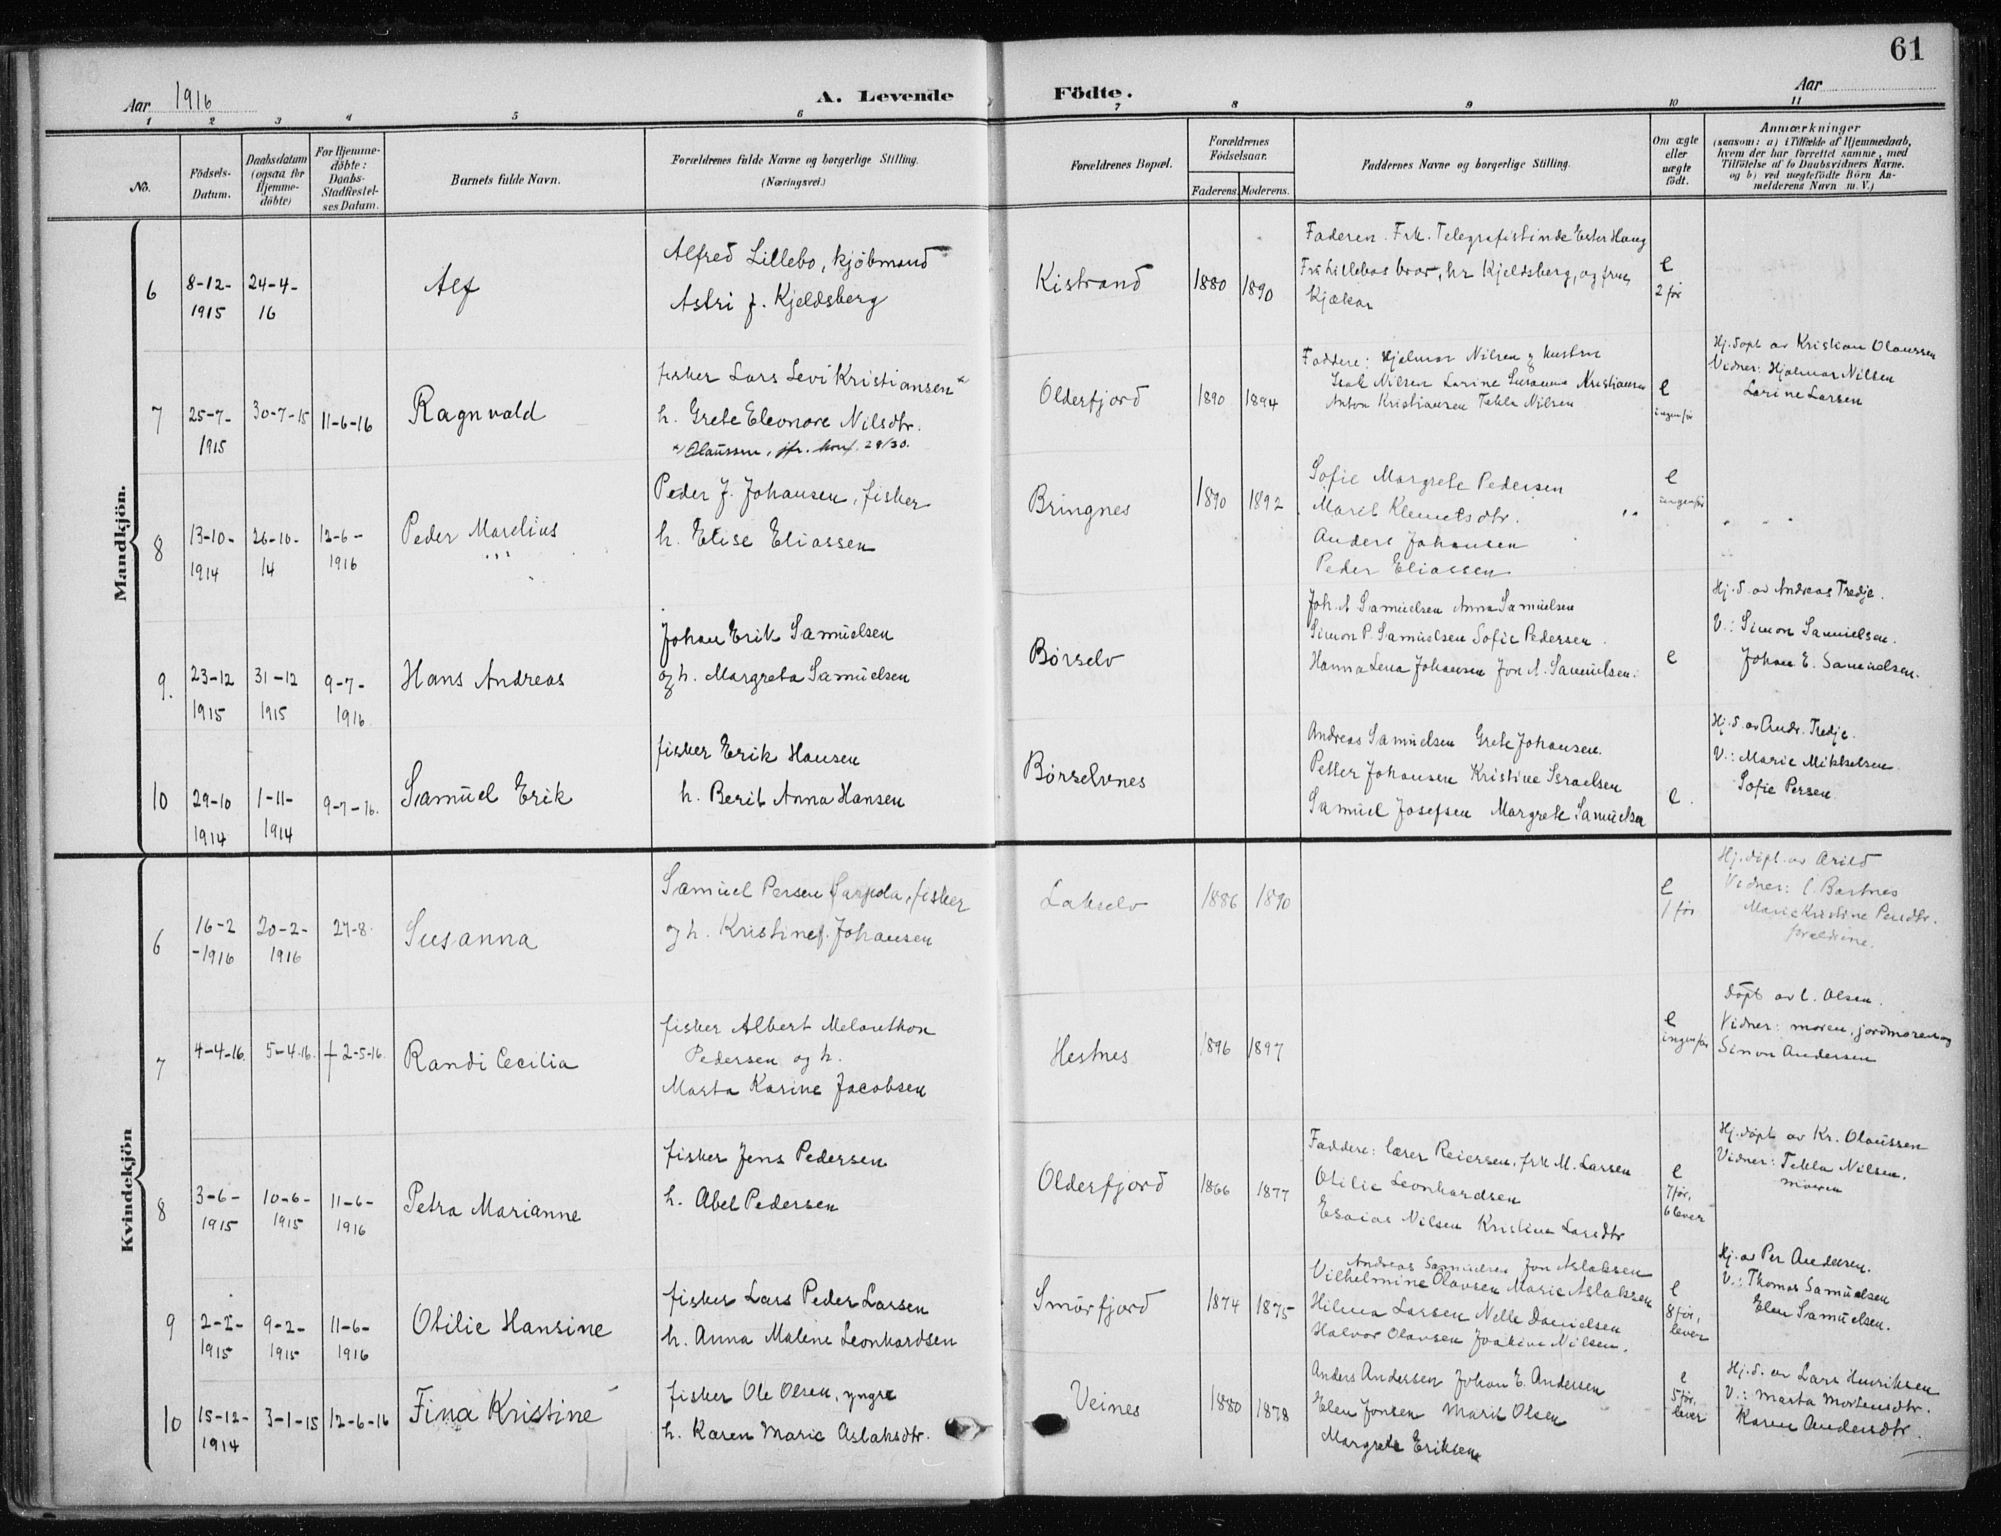 61
Aar 1916
A. Levende Födte.
Aar
1 2 3 4 5 6 7 8 9 10 11
No.
Födsels-
Datum.
Daabsdatum
(ogsaa for
Hjemme-
döbte)
For Hjemme-
döbte:
Daabs-
Stadfæstel-
ses Datum.
Barnets fulde Navn.
Forældrenes fulde Navne og borgerlige Stilling.
(Næringsvei.)
Forældrenes Bopæl.
Forældrenes
Födselsaar.
Faderens. Moderens.
Faddernes Navne og borgerlige Stilling.
Om ægte
eller
uægte
födt.
Anmærkninger
(saasom: a) i Tilfælde af Hjemmedaab,
hvem der har forrettet samme, med
Tilföielse af to Daabsvidners Navne.
og b) ved uægtefödte Börn An-
melderens Navn m. V.)
Mandkjön.
6
8-12-
1915
24-4-
16
Alf
Alfred Lillebo, kjöbmand
Astri f. Kjeldsberg
Kistrand
1880
1890
Faderen. Frk. Telegrafistinde Ester Haug
Fru Lillebos bror, hr Kjeldsberg, og frue,
Kjækan
e
2 før
7
25-7-
1915
30-7-15
11-6-16
Ragnvald
fisker Lars Levi Kristiansen x
h. Grete Eleonore Nilsdtr.
x) Olaussen, jfr. konf. 29/30.
Olderfjord
1890
1894
Faddere: Hjalmar Nilsen og hustru
Isak Nilsen Larine Susanna Kristiansen
Anton Kristiansen Tekla Nilsen
e
ingen før
Hj. döpt av Kristian Olaussen
Vidner: Hjalmar Nilsen
Larine Larsen
8
13-10-
1914
26-10-
14
12-6-
1916
Peder Marelius
Peder J. Johansen, fisker
h. Elise Eliassen
Bringnes
1890
1892
Sofie Margrete Pedersen
Marit Klemetsdtr.
Anders Johansen
Peder Eliassen
e
ingen før
9.
23-12
1915
31-12
1915
9-7-
1916
Hans Andreas
Johan Erik Samuelsen
og h. Margreta Samuelsen
Børselv
Joh. A Samuelsen Anna Samuelsen
Simon P. Samuelsen Sofie Pedersen.
Hanna Lena Johansen Jon A. Samuelsen.
e
Hj. d. av Andreas Tredje.
V.: Simon Samuelsen.
Johan E. Samuelsen.
10
29-10
1914
1-11-
1914
9-7-16.
Samuel Erik
fisker Erik Hansen
h. Berit Anna Hansen
Børselvnes
Andreas Samuelsen Grete Johansen.
Petter Johansen Kristine Israelsen
Samuel Josefsen Margrete Samuelsen
e.
Hj. d. av Andr. Tredje.
V.: Marie Mikkelsen
Sofie Persen.
Kvindekjön
6
16-2
-1916
20-2-
1916
27-8.
Susanna
Samuel Persen Sarpola, fisker
og h. Kristine f. Johansen
Lakselv
1886
1890
e
1 før
Hj. döpt av Arild
Vidner: C. Bartnes
Marie Kristine Persdtr.
forældrene.
7
4-4-16.
5-4-16.
† 2-5-16.
Randi Cecilia
fisker Albert Melankton
Pedersen og h.
Marta Karine Jacobsen
Hestnes
1896
1897
e
ingen før
Döpt av C. Olsen.
Vidner: moren, jordmoren og
Simon Andersen
8
3-6-
1915
10-6-
1915
11-6-
1916
Petra Marianne
fisker Jens Pedersen
h. Abel Pedersen
Olderfjord
1866
1877
Faddere: lærer Reiersen, frk M. Larsen
Otilie Leonhardsen
Esaias Nilsen Kristine Larsdtr
e
7 før,
6 lever
Hj. döpt av Kr. Olaussen
Vidner: Tekla Nilsen.
moren
9
2-2-
1915
9-2-
1915
11-6-
1916
Otilie Hansine
fisker Lars Peder Larsen
h. Anna Malene Leonhardsen
Smörfjord
1874
1875
Andreas Samuelsen Jon Aslaksen
Vilhelmine Olavsen Marie Aslaksen
Hilma Larsen Nelle Danielsen
Halvor Olavsen Joakim Nilsen.
e
8 før,
lever
Hj. av Per Andersen.
V.: Thomas Samuelsen
Elen Samuelsen.
10
15-12-
1914
3-1-15
12-6-16
Fina Kristine
fisker Ole Olsen, yngre
h. Karen Marie Aslaksdtr.
Veines
1880
1878
Anders Andersen Johan E. Andersen
Elen Jonsen Marit Olsen
Margrete Eriksen
e
5 før,
lever
Hj. d. av Lars Henriksen
V.: Marta Mortensdtr.
Karen Andersdtr.